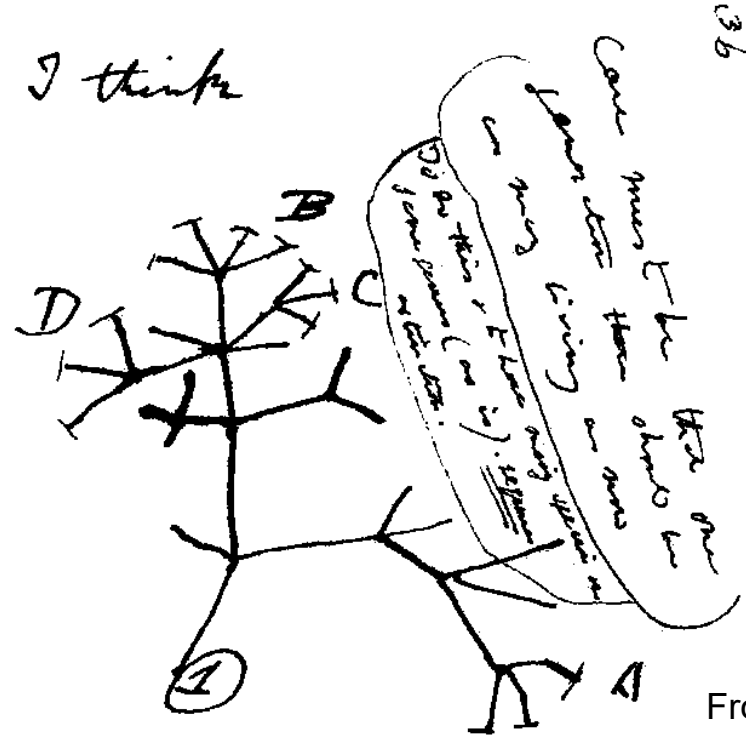 36
I think
Case must be that one
generation then should be
as many living as now
To do this & to have many species in
same genus (as is). requires
extinction.
B
C
D
A
1
Fro